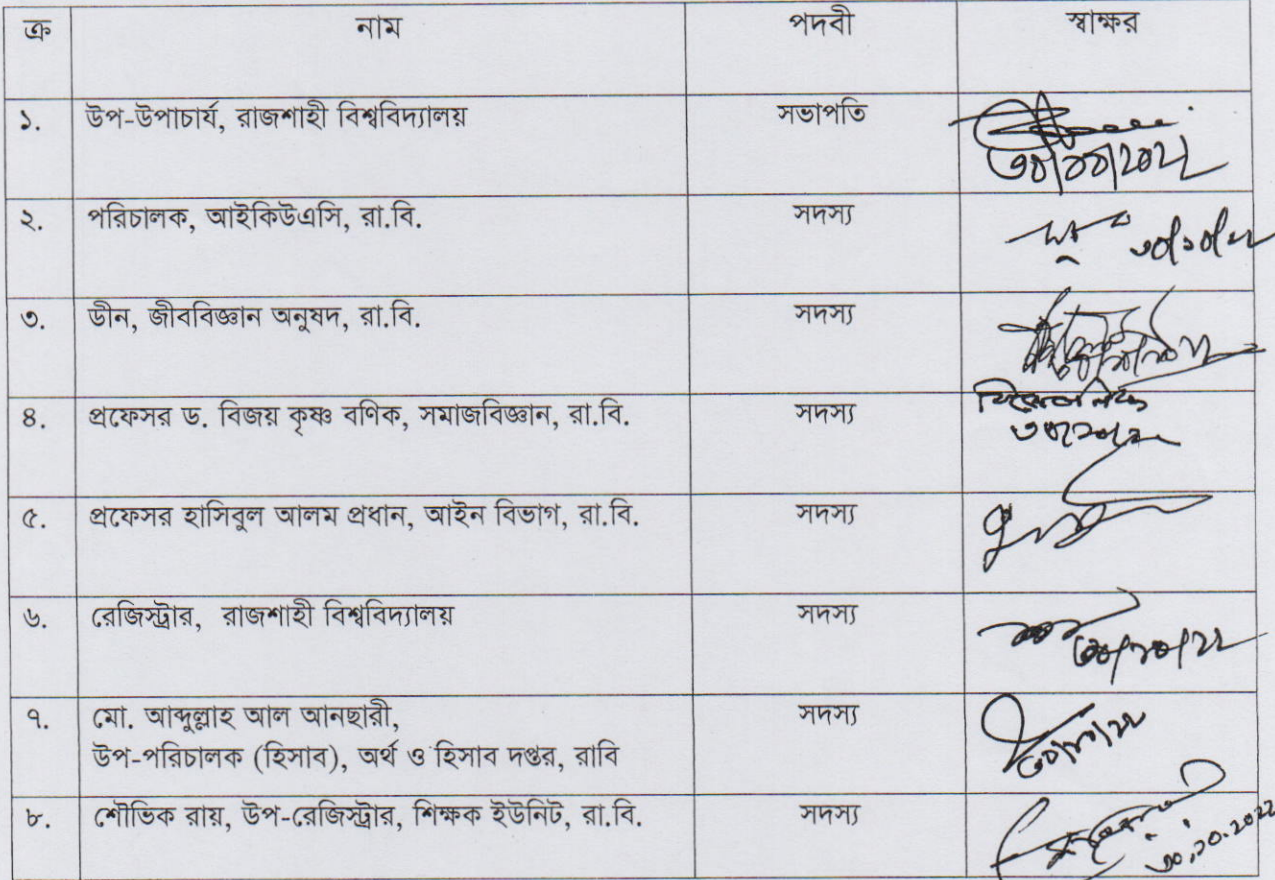 ক্র নাম পদবী স্বাক্ষর
১. উপ-উপাচার্য, রাজশাহী বিশ্ববিদ্যালয় সভাপতি
৩০/১০/২০২২
২. পরিচালক, আইকিউএসি, রা.বি. সদস্য ৩০/১০/২২
৩. ডীন, জীববিজ্ঞান অনুষদ, রা.বি. সদস্য
৪. প্রফেসর ড. বিজয় কৃষ্ণ বণিক, সমাজবিজ্ঞান, রা.বি. সদস্য
৫. প্রফেসর হাসিবুল আলম প্রধান, আইন বিভাগ, রা.বি. সদস্য
৬. রেজিস্ট্রার, রাজশাহী বিশ্ববিদ্যালয় সদস্য
৩০/১০/২২
৭. মো. আব্দুল্লাহ আল আনছারী, সদস্য
উপ-পরিচালক (হিসাব), অর্থ ও হিসাব দপ্তর, রাবি
৮. শৌভিক রায়, উপ-রেজিস্ট্রার, শিক্ষক ইউনিট, রা.বি. সদস্য
৩০.১০.২০২২